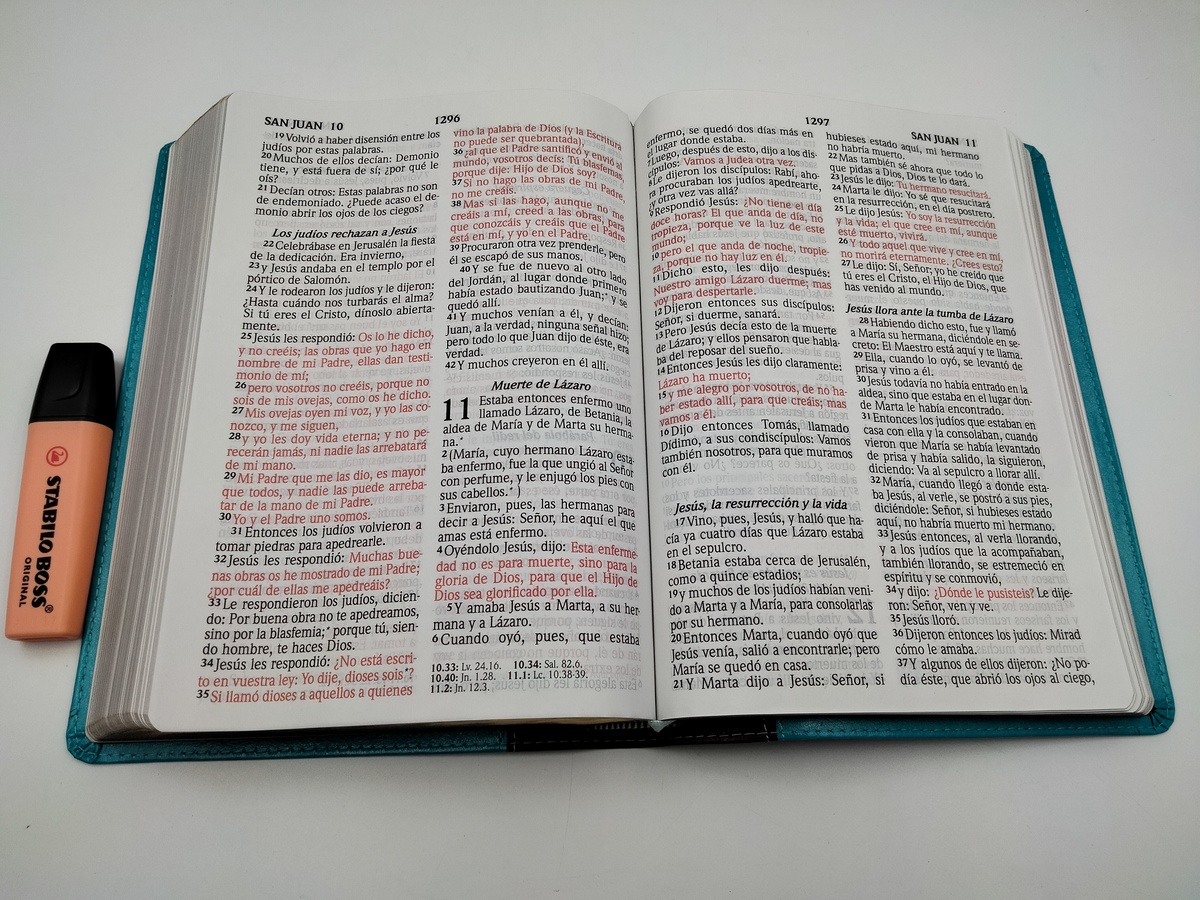 SAN JUAN 10
1296
19 Volvió a haber disensión entre los
judíos por estas palabras.
20 Muchos de ellos decían: Demonio
tiene, y está fuera de sí; ¿por qué le
oís?
21 Decían otros: Estas palabras no son
de endemoniado. ¿Puede acaso el de-
monio abrir los ojos de los ciegos?
Los judíos rechazan a Jesús
22 Celebrábase en Jerusalén la fiesta
de la dedicación. Era invierno,
23 y Jesús andaba en el templo por el
pórtico de Salomón.
24 Y le rodearon los judíos y le dijeron:
¿Hasta cuándo nos turbarás el alma?
Si tú eres el Cristo, dínoslo abierta-
mente.
25 Jesús les respondió: Os lo he dicho,
y no creéis; las obras que yo hago en
nombre de mi Padre, ellas dan testi-
monio de mí;
26 pero vosotros no creéis, porque no
sois de mis ovejas, como os he dicho.
27 Mis ovejas oyen mi voz, y yo las co-
nozco, y me siguen,
28 y yo les doy vida eterna; y no pe-
recerán jamás, ni nadie las arrebatará
de mi mano.
29 Mi Padre que me las dio, es mayor
que todos, y nadie las puede arreba-
tar de la mano de mi Padre.
30 Yo y el Padre uno somos.
31 Entonces los judíos volvieron a
tomar piedras para apedrearle.
32 Jesús les respondió: Muchas bue-
nas obras os he mostrado de mi Padre;
¿por cuál de ellas me apedreáis?
33 Le respondieron los judíos, dicien-
do: Por buena obra no te apedreamos,
sino por la blasfemia;* porque tú, sien-
do hombre, te haces Dios.
34 Jesús les respondió: ¿No está escri-
to en vuestra ley: Yo dije, dioses sois*?
35 Si llamó dioses a aquellos a quienes
vino la palabra de Dios (y la Escritura
no puede ser quebrantada),
36 ¿al que el Padre santificó y envió al
mundo, vosotros decís: Tú blasfemas,
porque dije: Hijo de Dios soy?
37 Si no hago las obras de mi Padre,
no me creáis.
38 Mas si las hago, aunque no me
creáis a mí, creed a las obras, para
que conozcáis y creáis que el Padre
está en mí, y yo en el Padre.
39 Procuraron otra vez prenderle, pero
él se escapó de sus manos.
40 Y se fue de nuevo al otro lado
del Jordán, al lugar donde primero
había estado bautizando Juan;* y se
quedó allí.
41 Y muchos venían a él, y decían:
Juan, a la verdad, ninguna señal hizo;
pero todo lo que Juan dijo de éste, era
verdad.
42 Y muchos creyeron en él allí.
Muerte de Lázaro
11 Estaba entonces enfermo uno
llamado Lázaro, de Betania, la
aldea de María y de Marta su herma-
na.*
2 (María, cuyo hermano Lázaro esta-
ba enfermo, fue la que ungió al Señor
con perfume, y le enjugó los pies con
sus cabellos.*)
3 Enviaron, pues, las hermanas para
decir a Jesús: Señor, he aquí el que
amas está enfermo.
4 Oyéndolo Jesús, dijo: Esta enferme-
dad no es para muerte, sino para la
gloria de Dios, para que el Hijo de
Dios sea glorificado por ella.
5 Y amaba Jesús a Marta, a su her-
mana y a Lázaro.
6 Cuando oyó, pues, que estaba
10.33: Lv. 24.16. 10.34: Sal. 82.6.
10.40: Jn. 1.28. 11.1: Lc. 10.38-39.
11.2: Jn. 12.3.
1297
SAN JUAN 11
enfermo, se quedó dos días más en
el lugar donde estaba.
7 Luego, después de esto, dijo a los dis-
cípulos: Vamos a Judea otra vez.
8 Le dijeron los discípulos: Rabí, aho-
ra procuraban los judíos apedrearte,
¿y otra vez vas allá?
9 Respondió Jesús: ¿No tiene el día
doce horas? El que anda de día, no
tropieza, porque ve la luz de este
mundo;
10 pero el que anda de noche, tropie-
za, porque no hay luz en él.
11 Dicho esto, les dijo después:
Nuestro amigo Lázaro duerme; mas
voy para despertarle.
12 Dijeron entonces sus discípulos:
Señor, si duerme, sanará.
13 Pero Jesús decía esto de la muerte
de Lázaro; y ellos pensaron que habla-
ba del reposar del sueño.
14 Entonces Jesús les dijo claramente:
Lázaro ha muerto;
15 y me alegro por vosotros, de no ha-
ber estado allí, para que creáis; mas
vamos a él.
16 Dijo entonces Tomás, llamado
Dídimo, a sus condiscípulos: Vamos
también nosotros, para que muramos
con él.
Jesús, la resurrección y la vida
17 Vino, pues, Jesús, y halló que ha-
cía ya cuatro días que Lázaro estaba
en el sepulcro.
18 Betania estaba cerca de Jerusalén,
como a quince estadios;
19 y muchos de los judíos habían veni-
do a Marta y a María, para consolarlas
por su hermano.
20 Entonces Marta, cuando oyó que
Jesús venía, salió a encontrarle; pero
María se quedó en casa.
21 Y Marta dijo a Jesús: Señor, si
hubieses estado aquí, mi hermano
no habría muerto.
22 Mas también sé ahora que todo lo
que pidas a Dios, Dios te lo dará.
23 Jesús le dijo: Tu hermano resucitará.
24 Marta le dijo: Yo sé que resucitará
en la resurrección, en el día postrero.
25 Le dijo Jesús: Yo soy la resurrección
y la vida; el que cree en mí, aunque
esté muerto, vivirá.
26 Y todo aquel que vive y cree en mí,
no morirá eternamente. ¿Crees esto?
27 Le dijo: Sí, Señor; yo he creído que
tú eres el Cristo, el Hijo de Dios, que
has venido al mundo.
Jesús llora ante la tumba de Lázaro
28 Habiendo dicho esto, fue y llamó
a María su hermana, diciéndole en se-
creto: El Maestro está aquí y te llama.
29 Ella, cuando lo oyó, se levantó de
prisa y vino a él.
30 Jesús todavía no había entrado en la
aldea, sino que estaba en el lugar don-
de Marta le había encontrado.
31 Entonces los judíos que estaban en
casa con ella y la consolaban, cuando
vieron que María se había levantado
de prisa y había salido, la siguieron,
diciendo: Va al sepulcro a llorar allí.
32 María, cuando llegó a donde esta-
ba Jesús, al verle, se postró a sus pies,
diciéndole: Señor, si hubieses estado
aquí, no habría muerto mi hermano.
33 Jesús entonces, al verla llorando,
y a los judíos que la acompañaban,
también llorando, se estremeció en
espíritu y se conmovió,
34 y dijo: ¿Dónde le pusisteis? Le dije-
ron: Señor, ven y ve.
35 Jesús lloró.
36 Dijeron entonces los judíos: Mirad
cómo le amaba.
37 Y algunos de ellos dijeron: ¿No po-
día éste, que abrió los ojos al ciego,
STABILO BOSS®
ORIGINAL